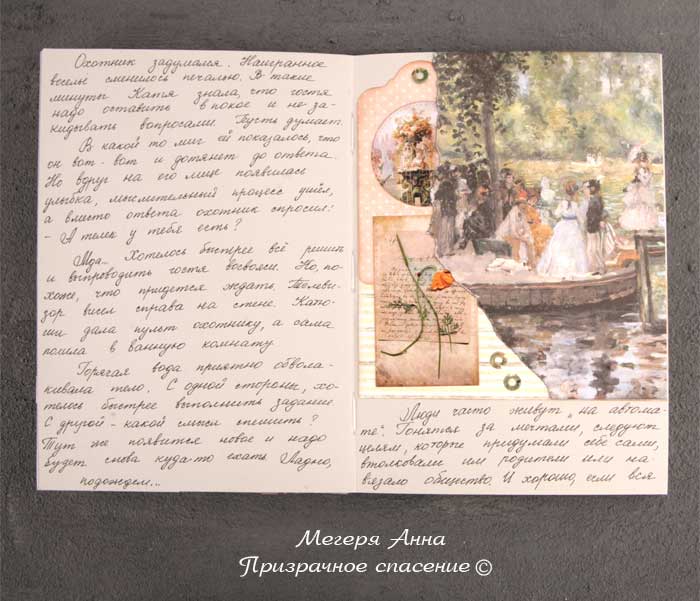 Охотник задумался. Наигранное
веселье сменилось печалью. В такие
минуты Катя знала, что гостя
надо оставить в покое и не за-
кидывать вопросами. Пусть думает.
В какой то миг ей показалось, что
он вот-вот и дотянет до ответа.
Но вдруг на его лице появилась
улыбка, мыслительный процесс ушёл,
а вместо ответа охотник спросил:
- А телек у тебя есть?
Мда... Хотелось быстрее всё решить
и выпроводить гостя восвояси. Но, по-
хоже, что придется ждать. Телеви-
зор висел справа на стене. Катю-
ши дала пульт охотнику, а сама
пошла в ванную комнату.
Горячая вода приятно обвола-
кивала тело. С одной стороны, хо-
телось быстрее выполнить задание.
С другой - какой смысл спешить?
Тут же появится новое и надо
будет снова куда-то ехать. Ладно,
подождем...
Люди часто живут "на автома-
те". Гонятся за мечтами, следуют
целям, которые придумали себе сами,
втолковали им родители или на-
вязало общество. И хорошо, если вся
Мегеря Анна
Призрачное спасение ©